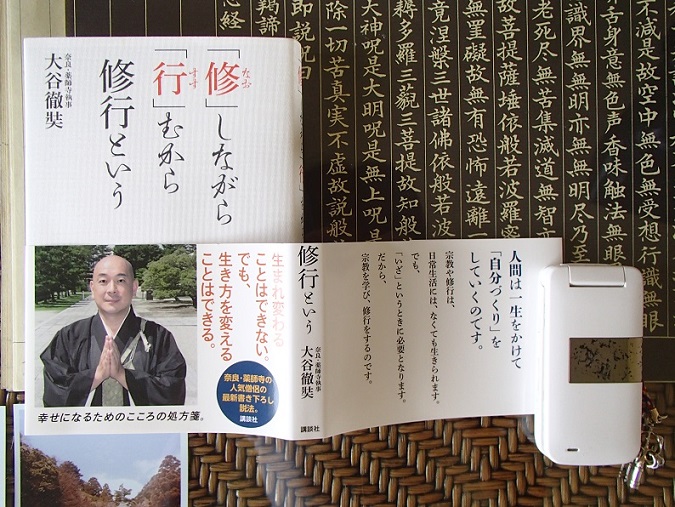 不減是故空中無色無受想行識無眼
舌身意無色声香味触法無眼
識界無無明亦無無明尽乃至
老死尽無苦集滅道無智
故菩提薩埵依般若波羅蜜
無罣礙故無有恐怖遠離一
竟涅槃三世諸佛依般若波
耨多羅三藐三菩提故知般
大神呪是大明呪是無上呪是
除一切苦真実不虚故説般
即説呪曰
羯諦
心経
「修」しながら
「行」むから
修行という
奈良・薬師寺執事
大谷徹奘
生まれ変わる
ことはできない。
でも、
生き方を変える
ことはできる。
奈良・薬師寺の
人気僧侶の
最新書き下ろし
説法。
講談社
幸せになるためのこころの処方箋。
修行という
奈良・薬師寺執事
大谷徹奘
講談社
人間は一生をかけて
「自分づくり」を
していくのです。
宗教や修行は、
日常生活には、なくても生きられます。
でも、
“いざ”というときに必要となります。
だから、
宗教を学び、修行をするのです。